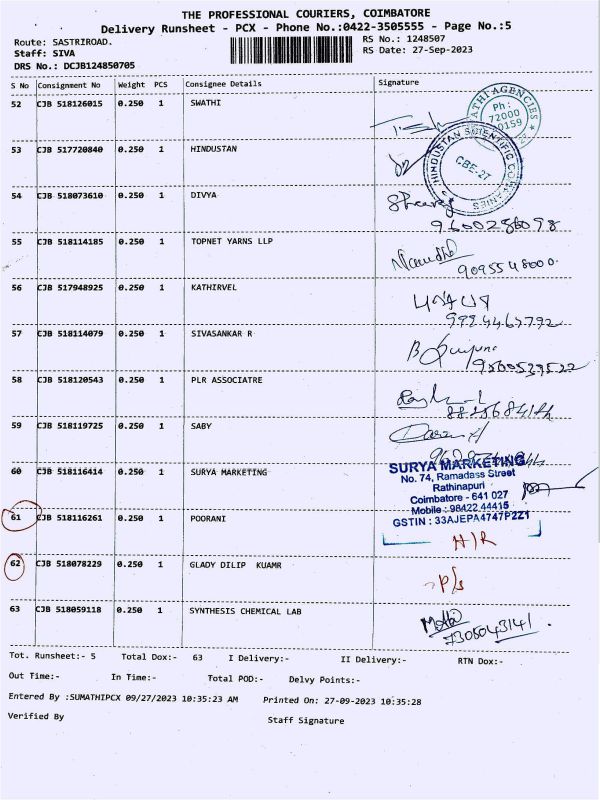 THE PROFESSIONAL COURIERS, COIMBATORE
Delivery Runsheet - PCX - Phone No.:0422-3505555 - Page No.:5
Route: SASTRIROAD.
RS No.: 1248507
Staff: SIVA
RS Date: 27-Sep-2023
DRS No.: DCJB124850705
S No Consignment No Weight PCS Consignee Details Signature
52 CJB 518126015 0.250 1 SWATHI
ATHI AGENCIES
Ph :
72000
0159
53 CJB 517720840 0.250 1 HINDUSTAN
HINDUSTAN SCIENTIFIC COMPANIES
CBE-27
54 CJB 518073610 0.250 1 DIVYA
9600286098
55 CJB 518114185 0.250 1 TOPNET YARNS LLP
9095548000.
56 CJB 517948925 0.250 1 KATHIRVEL
9994467792
57 CJB 518114079 0.250 1 SIVASANKAR R
58 CJB 518120543 0.250 1 PLR ASSOCIATRE
59 CJB 518119725 0.250 1 SABY
60 CJB 518116414 0.250 1 SURYA MARKETING
SURYA MARKETING
No. 74, Ramadass Street
Rathinapuri
Coimbatore - 641 027
Mobile : 98422 44415
GSTIN : 33AJEPA4747P2Z1
61 CJB 518116261 0.250 1 POORANI
H/R
62 CJB 518078229 0.250 1 GLADY DILIP KUAMR
P/s
63 CJB 518059118 0.250 1 SYNTHESIS CHEMICAL LAB
7305043141.
Tot. Runsheet:- 5 Total Dox:- 63 I Delivery:- II Delivery:- RTN Dox:-
Out Time:- In Time:- Total POD:- Delvy Points:-
Entered By :SUMATHIPCX 09/27/2023 10:35:23 AM Printed On: 27-09-2023 10:35:28
Verified By Staff Signature